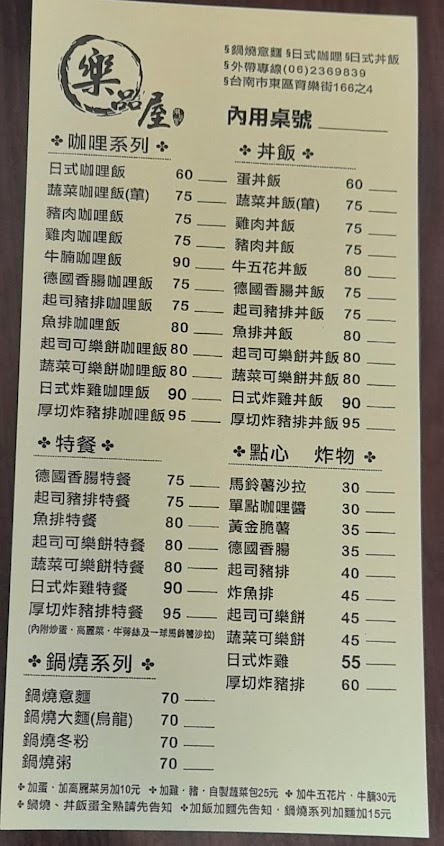 樂品屋
§鍋燒意麵 §日式咖哩 §日式丼飯
§外帶專線(06)2369839
§台南市東區育樂街166之4
內用桌號
咖哩系列
日式咖哩飯 60
蔬菜咖哩飯(葷) 75
豬肉咖哩飯 75
雞肉咖哩飯 75
牛腩咖哩飯 90
德國香腸咖哩飯 75
起司豬排咖哩飯 75
魚排咖哩飯 80
起司可樂餅咖哩飯 80
蔬菜可樂餅咖哩飯 80
日式炸雞咖哩飯 90
厚切炸豬排咖哩飯 95
丼飯
蛋丼飯 60
蔬菜丼飯(葷) 75
雞肉丼飯 75
豬肉丼飯 75
牛五花丼飯 80
德國香腸丼飯 75
起司豬排丼飯 75
魚排丼飯 80
起司可樂餅丼飯 80
蔬菜可樂餅丼飯 80
日式炸雞丼飯 90
厚切炸豬排丼飯 95
特餐
德國香腸特餐 75
起司豬排特餐 75
魚排特餐 80
起司可樂餅特餐 80
蔬菜可樂餅特餐 80
日式炸雞特餐 90
厚切炸豬排特餐 95
(內附炒蛋、高麗菜、牛蒡絲及一球馬鈴薯沙拉)
點心 炸物
馬鈴薯沙拉 30
單點咖哩醬 30
黃金脆薯 35
德國香腸 35
起司豬排 40
炸魚排 45
起司可樂餅 45
蔬菜可樂餅 45
日式炸雞 55
厚切炸豬排 60
鍋燒系列
鍋燒意麵 70
鍋燒大麵(烏龍) 70
鍋燒冬粉 70
鍋燒粥 70
加蛋、加高麗菜另加10元 加雞、豬、自製蔬菜包25元 加牛五花片、牛腩30元
鍋燒、丼飯蛋全熟請先告知 加飯加麵先告知、鍋燒系列加麵加15元